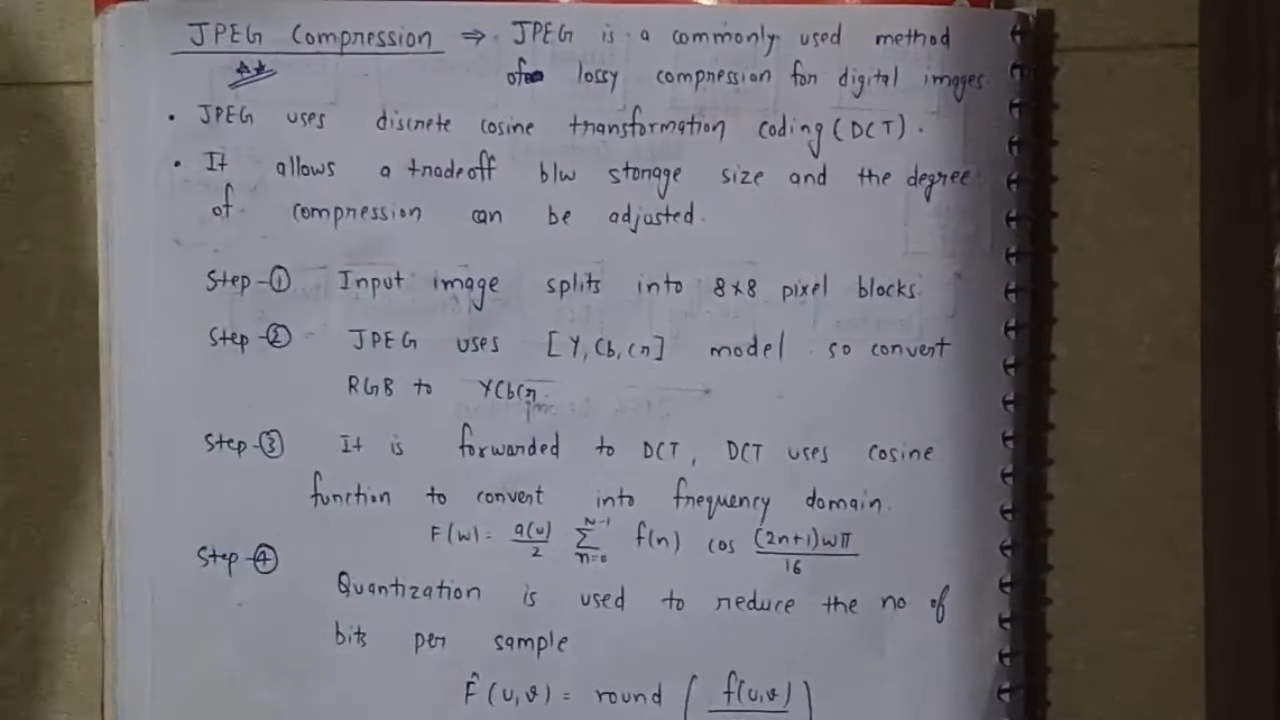 JPEG Compression ⇒ JPEG is a commonly used method
of lossy compression for digital images.
• JPEG uses discrete cosine transformation coding (DCT).
• It allows a tradeoff b/w storage size and the degree
of compression can be adjusted.
Step-① Input image splits into 8×8 pixel blocks.
Step-② JPEG uses [Y, Cb, Cr] model so convert
RGB to YCbCr.
Step-③ It is forwarded to DCT, DCT uses cosine
function to convert into frequency domain.
F(w) = a(u)/2 Σ n=0 N-1 f(n) cos (2n+1)wπ/16
Step-④
Quantization is used to reduce the no of
bits per sample
F̂(u,v) = round ( f(u,v) )